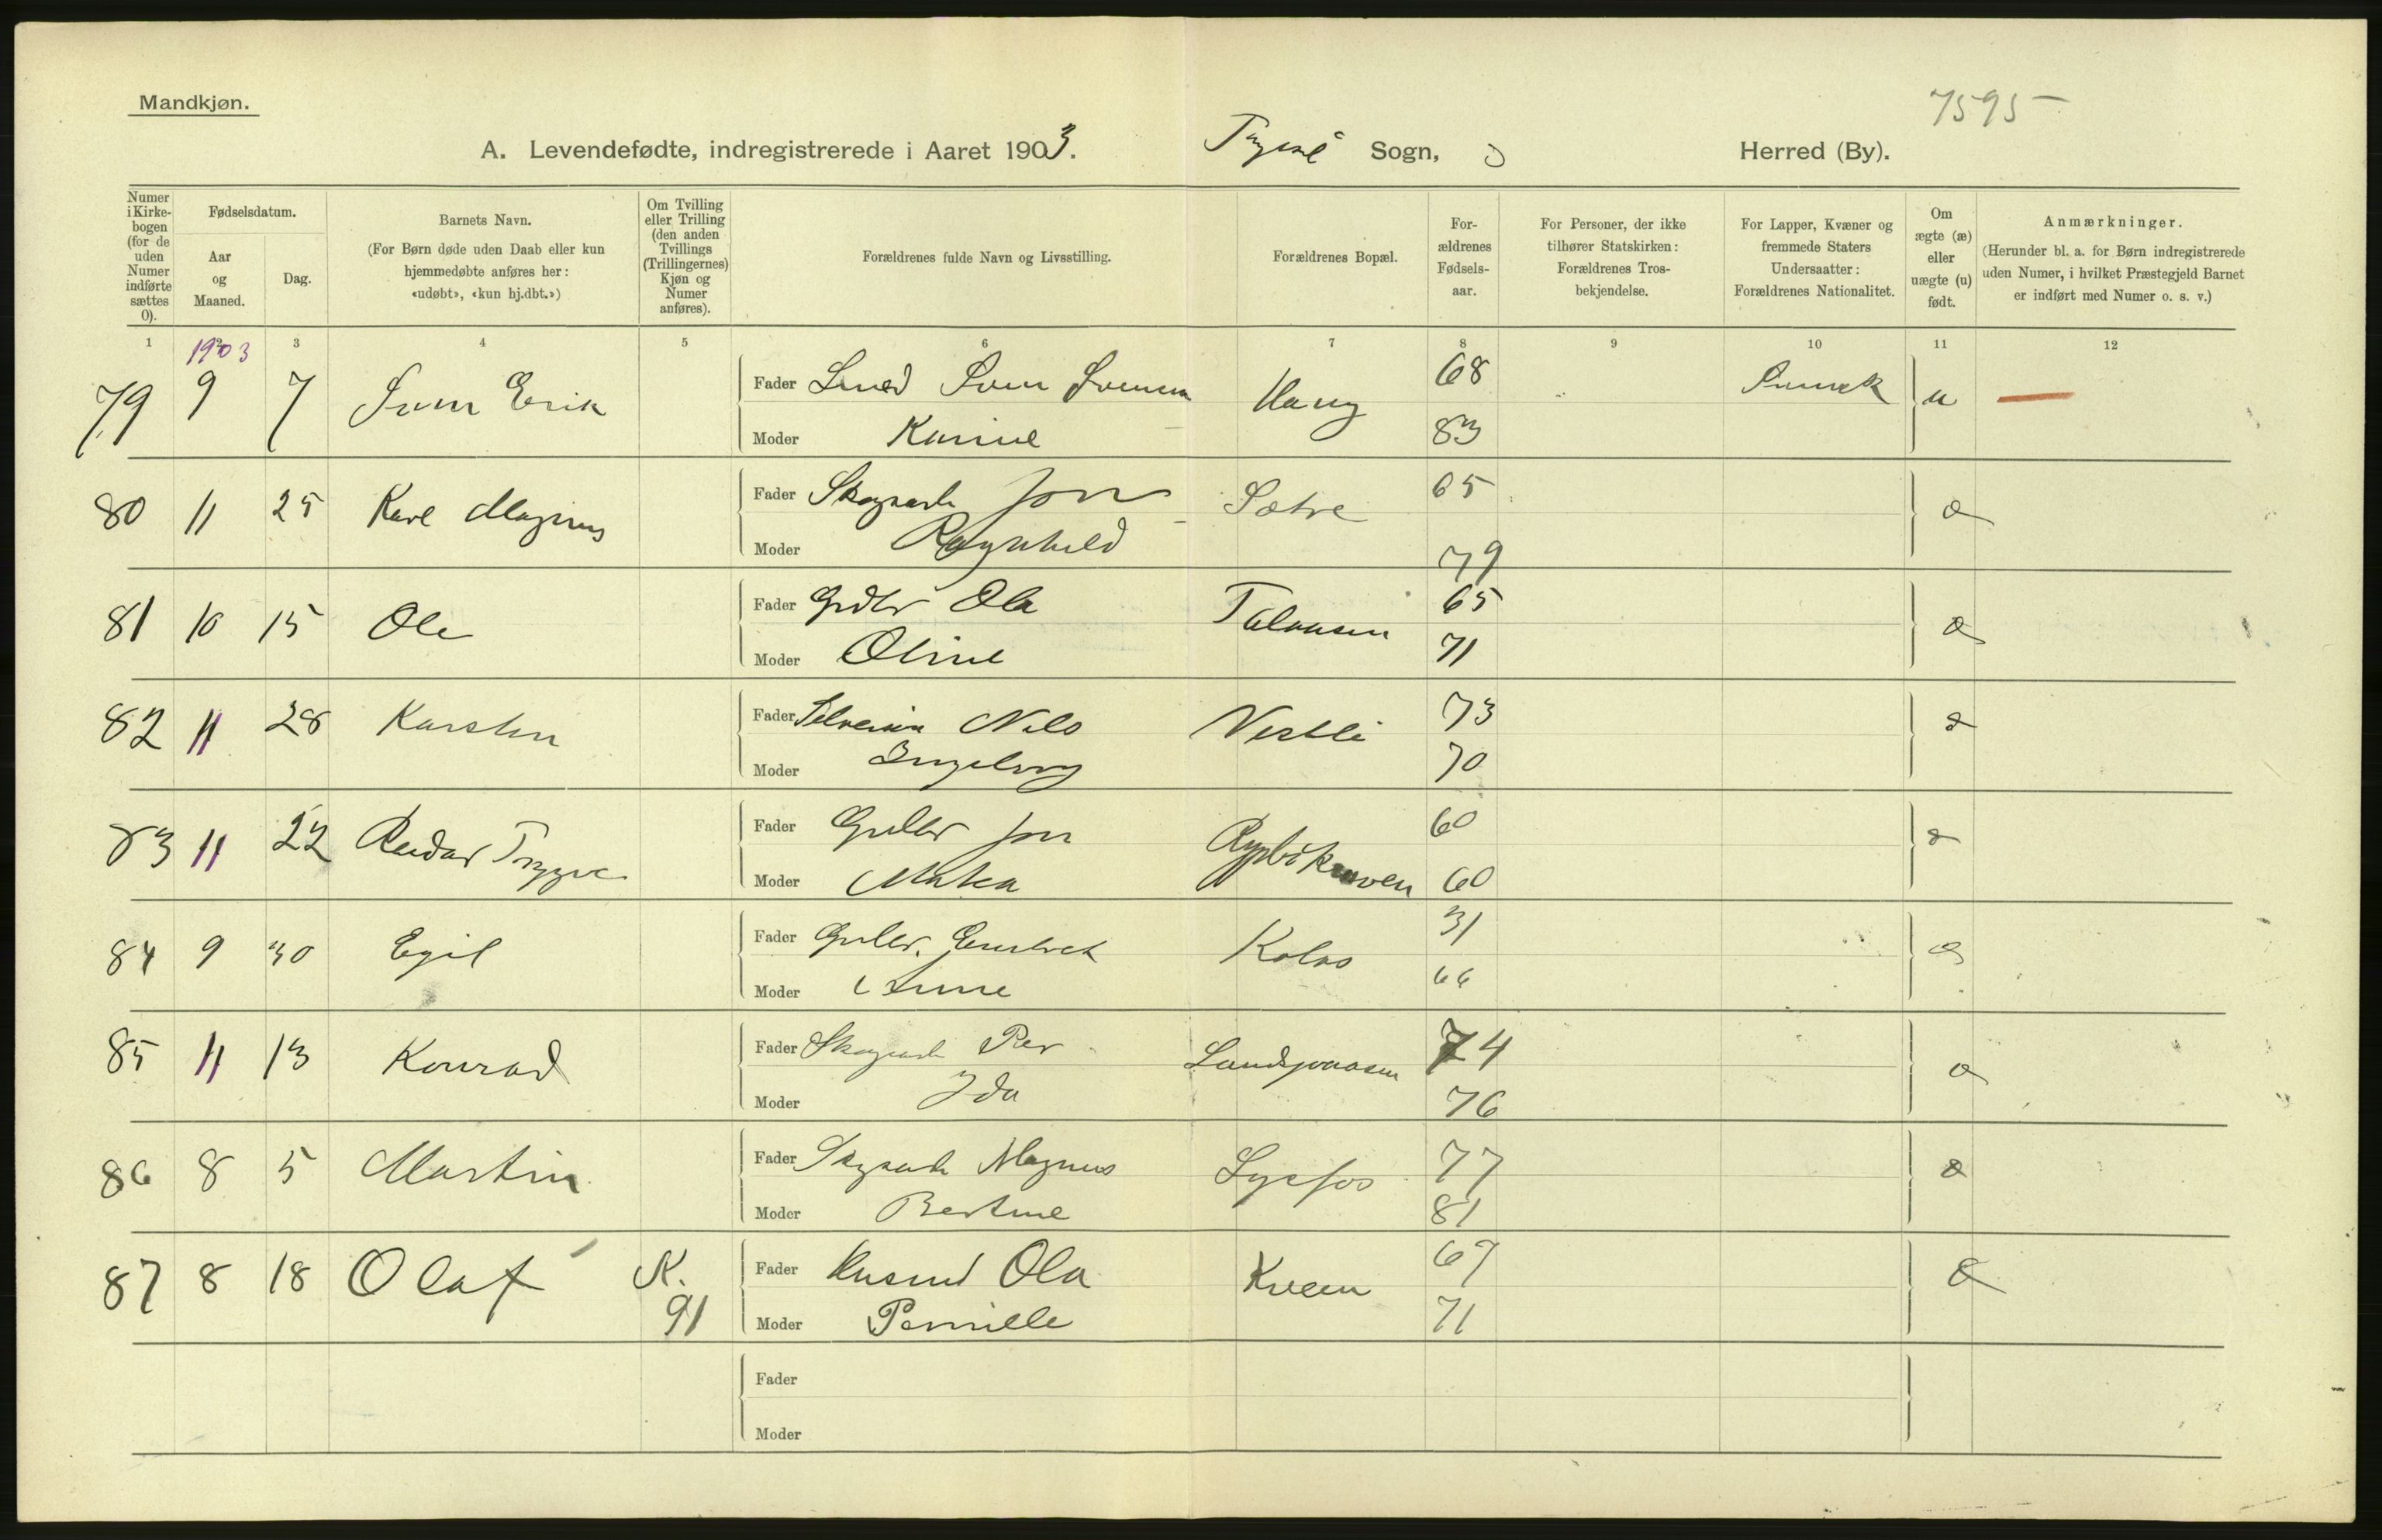 Mandkjøn.
7595
A. Levendefødte, indregistrerede i Aaret 1903.
Trysil Sogn,
Herred (By).
Numer i Kirke-bogen (for de uden Numer indførte sættes 0).
Fødselsdatum.
Aar og Maaned.
Dag.
Barnets Navn.
(For Børn døde uden Daab eller kun hjemmedøbte anføres her: «udøbt», «kun hj.dbt.»)
Om Tvilling eller Trilling (den anden Tvillings (Trillingernes) Kjøn og Numer anføres).
Forældrenes fulde Navn og Livsstilling.
Forældrenes Bopæl.
For-ældrenes Fødsels-aar.
For Personer, der ikke tilhører Statskirken: Forældrenes Tros-bekjendelse.
For Lapper, Kvæner og fremmede Staters Undersaatter: Forældrenes Nationalitet.
Om ægte (æ) eller uægte (u) født.
Anmærkninger.
(Herunder bl. a. for Børn indregistrerede uden Numer, i hvilket Præstegjeld Barnet er indført med Numer o. s. v.)
1 2 3 4 5 6 7 8 9 10 11 12
1903
79 9 7 Sven Erik Fader Smed Sven Svensen Haug 68 Svensk u
Moder Karine 83
80 11 25 Karl Magnus Fader Skogsarb Jon Sætre 65 æ
Moder Ragnhild 79
81 10 15 Ole Fader Grdbr Ola 65 æ
Moder Oline 71
82 11 28 Karsten Fader Selveier Nils Vestli 73 æ
Moder Ingeborg 70
83 11 22 Reidar Trygve Fader Grdbr Jon 60 æ
Moder Mathea 60
84 9 30 Egil Fader Grdbr. Embret Kolos 31 æ
Moder Anne 66
85 11 13 Konrad Fader Skogsarb Per 74 æ
Moder Ida 76
86 8 5 Martin Fader Skogsarb Magnus 77 æ
Moder Bertine 81
87 8 18 Olaf K. 91 Fader Husmd Ola Kveen 67 æ
Moder Pernille 71
Fader
Moder